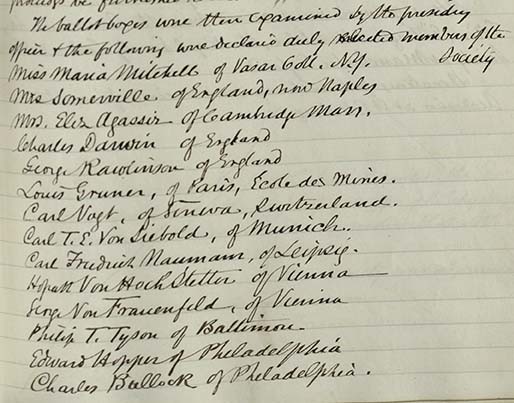 The ballot boxes were then examined by the presiding
officer & the following were declared duly elected members of the
Society
Miss Maria Mitchell of Vasar Coll. N.Y.
Mrs Somerville of England, now Naples
Mrs. Eliz Agassiz of Cambridge Mass.
Charles Darwin of England
George Rawlinson of England
Louis Gruner, of Paris, Ecole des Mines.
Carl Vogt, of Geneva, Switzerland.
Carl T. E. Von Siebold, of Munich.
Carl Fredrich Naumann, of Leipzig.
Von Hochstetter of Vienna
George Von Frauenfeld, of Vienna
Philip T. Tyson of Baltimore.
Edward Hopper of Philadelphia
Charles Bullock of Philadelphia.